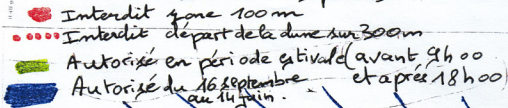 Interdit zone 100m
Interdit départ de la dune sur 300m
Autorisé en période estivale (avant 9h00
et après 18h00)
Autorisé du 16 septembre
au 14 juin.